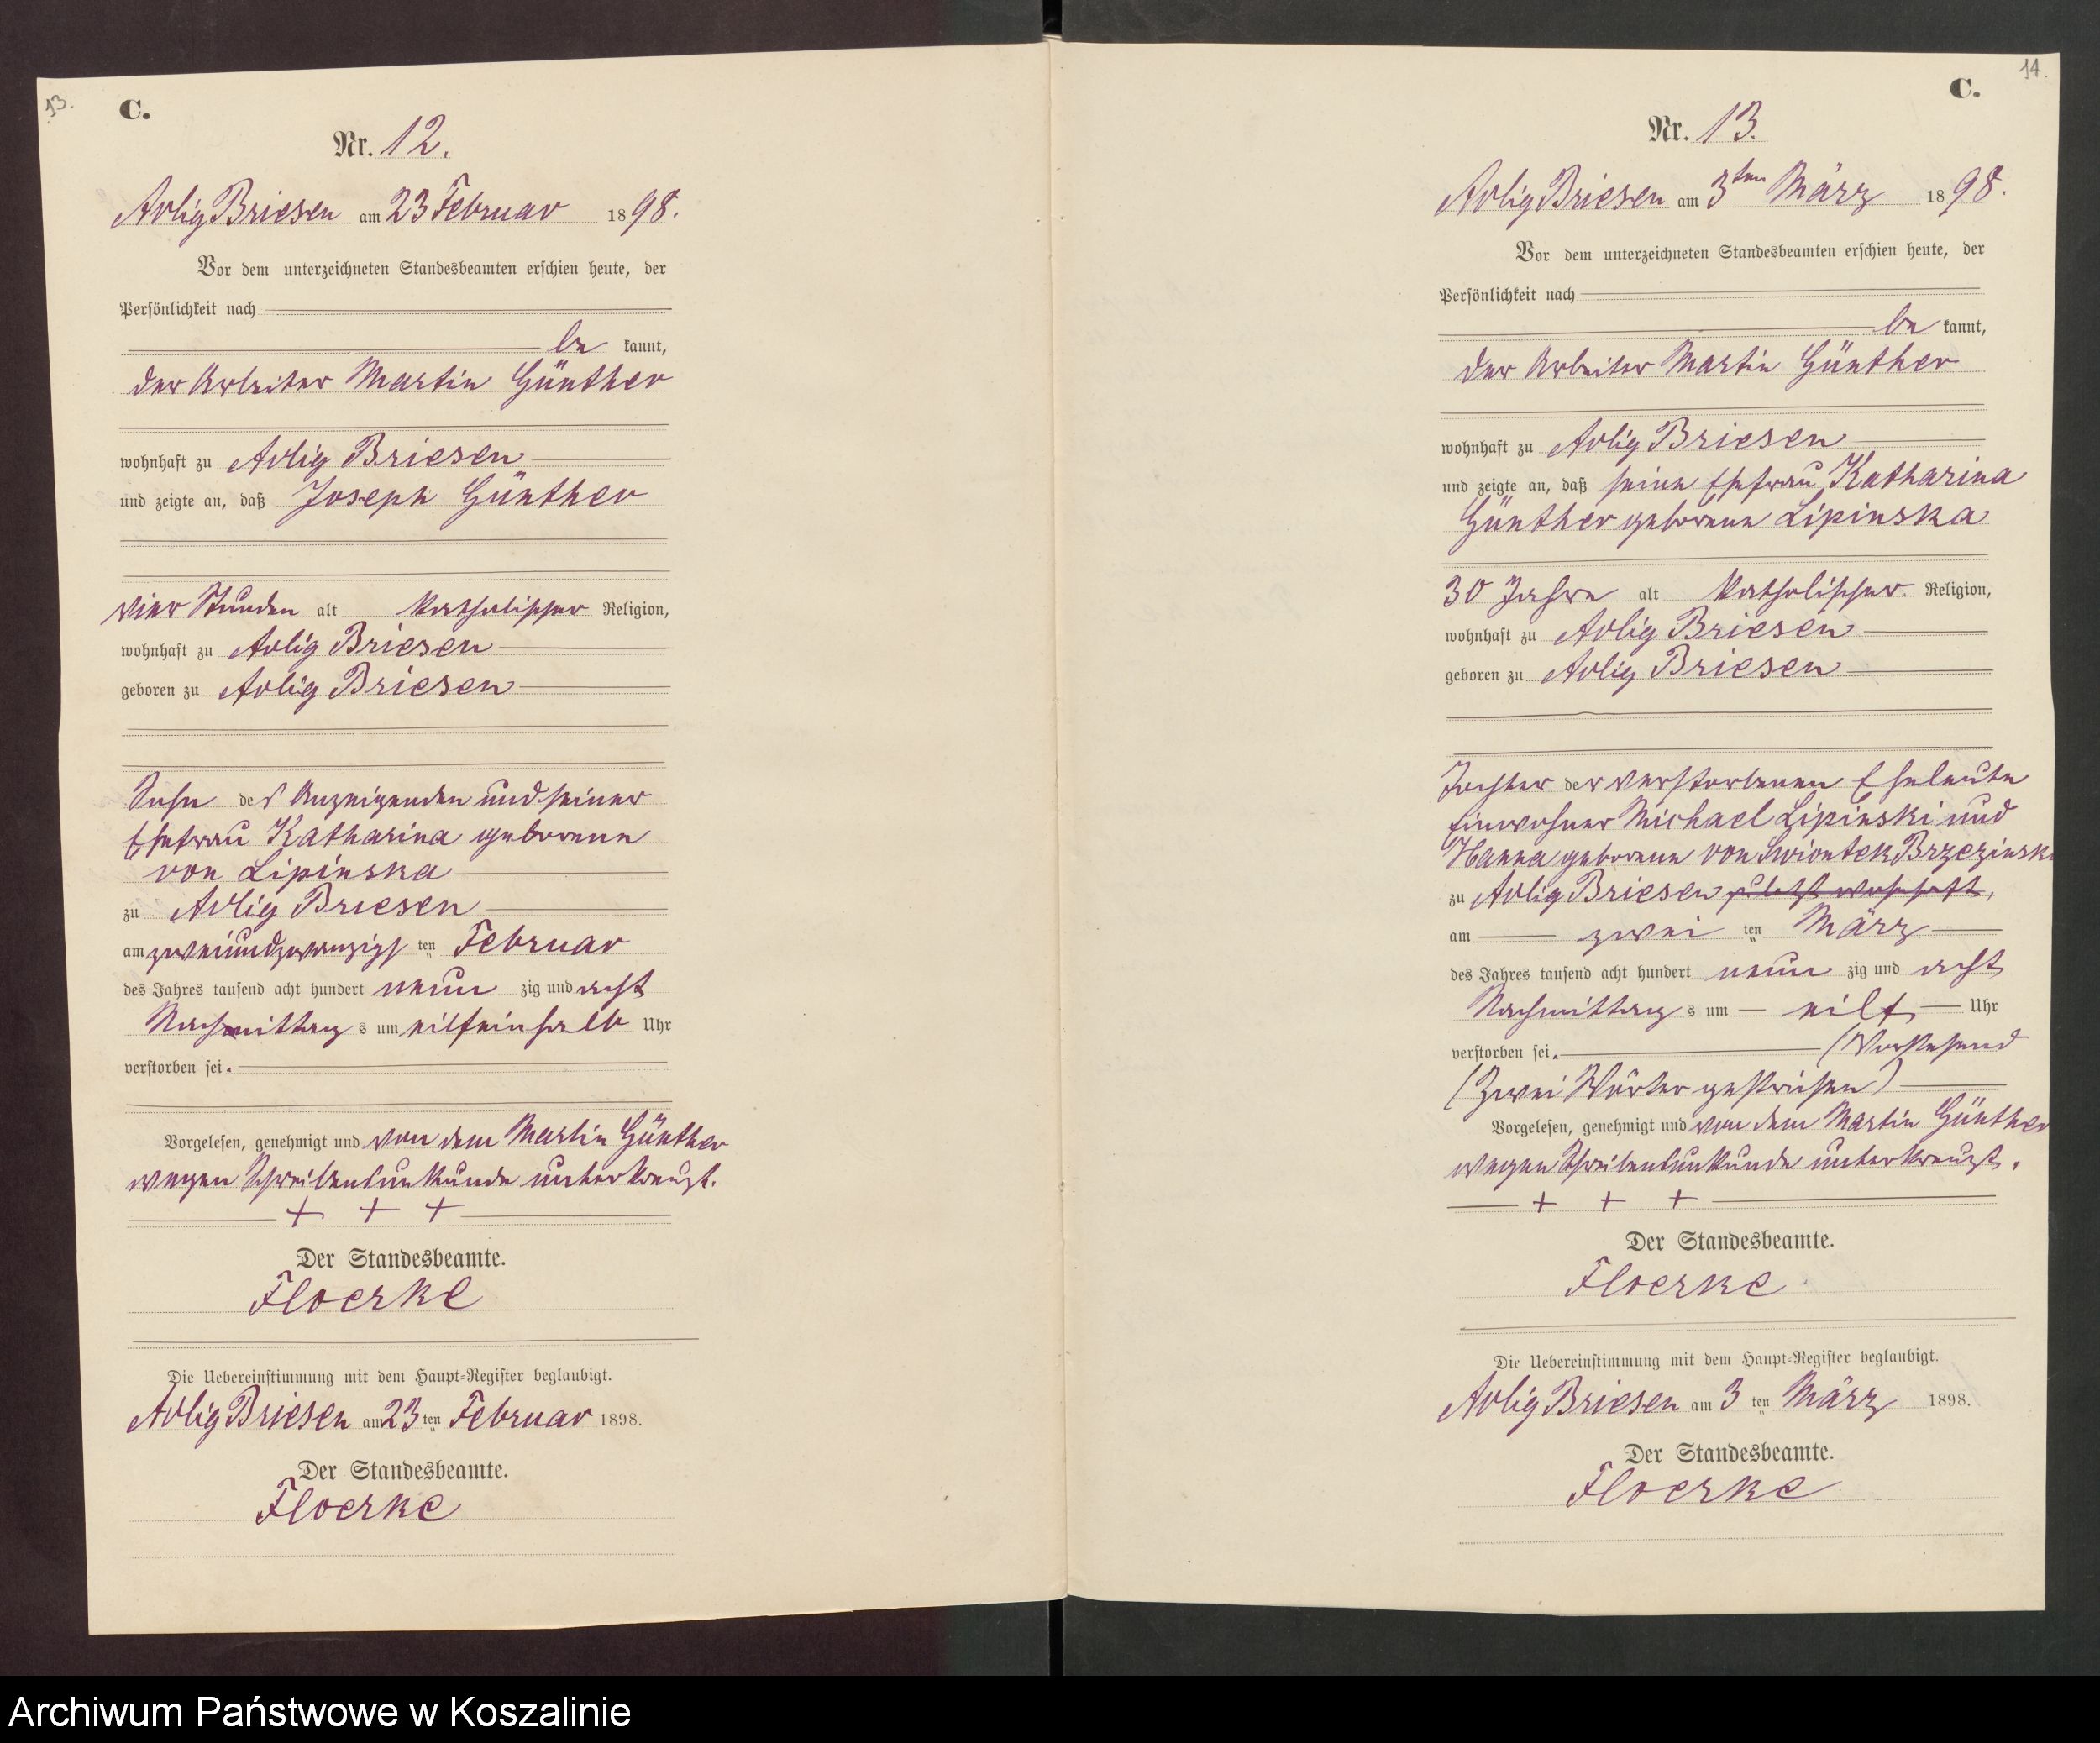 13.
C.
Nr. 12.
Adlig Briesen am 23 Februar 1898.
Vor dem unterzeichneten Standesbeamten erschien heute, der
Persönlichkeit nach
be kannt,
der Arbeiter Martin Günther
wohnhaft zu Adlig Briesen
und zeigte an, daß Joseph Günther
vier Stunden alt katholischer Religion,
wohnhaft zu Adlig Briesen
geboren zu Adlig Briesen
Sohn des Anzeigenden und seiner
Ehefrau Katharina geborene
von Lipinska
zu Adlig Briesen
am zweiundzwanzigs ten Februar
des Jahres tausend acht hundert neun zig und acht
Nachmittag s um eilfeinhalb Uhr
verstorben sei.
Vorgelesen, genehmigt und von dem Martin Günther
wegen Schreibensunkunde unterkreuzt.
+ + +
Der Standesbeamte.
Floerke
Die Uebereinstimmung mit dem Haupt-Register beglaubigt.
Adlig Briesen am 23 ten Februar 1898.
Der Standesbeamte.
Floerke
14.
C.
Nr. 13.
Adlig Briesen am 3ten März 1898.
Vor dem unterzeichneten Standesbeamten erschien heute, der
Persönlichkeit nach
be kannt,
der Arbeiter Martin Günther
wohnhaft zu Adlig Briesen
und zeigte an, daß seine Ehefrau Katharina
Günther geborene Lipinska
30 Jahre alt katholischer Religion,
wohnhaft zu Adlig Briesen
geboren zu Adlig Briesen
Tochter der verstorbenen Eheleute
Einwohner Michael Lipinski und
Hanna geborene von Swiontek Brzezinsk
zu Adlig Briesen zuletzt wohnhaft,
am zwei ten März
des Jahres tausend acht hundert neun zig und acht
Nachmittag s um eilf Uhr
verstorben sei. (Vorstehend
(Zwei Wörter gestrichen)
Vorgelesen, genehmigt und von dem Martin Günther
wegen Schreibensunkunde unterkreuzt.
+ + +
Der Standesbeamte.
Floerke
Die Uebereinstimmung mit dem Haupt-Register beglaubigt.
Adlig Briesen am 3 ten März 1898.
Der Standesbeamte.
Floerke
Archiwum Państwowe w Koszalinie